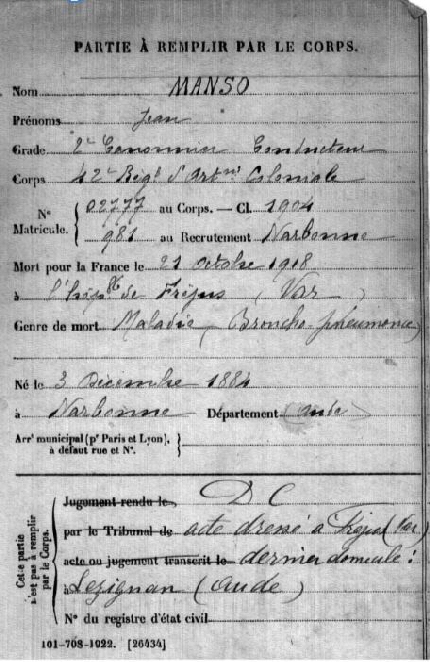 PARTIE À REMPLIR PAR LE CORPS.
Nom MANSO
Prénoms Jean
Grade 2e Canonnier Conducteur
Corps 42e Régt d'Artie Coloniale
No Matricule. { 02777 au Corps. — Cl. 1904
981 au Recrutement Narbonne
Mort pour la France le 21 octobre 1918
à l'hôpal de Fréjus (Var)
Genre de mort Maladie, Broncho-pneumonie
Né le 3 Décembre 1884
à Narbonne Département (Aude)
Arrt municipal (pr Paris et Lyon), à défaut rue et No. }
Cette partie n'est pas à remplir par le Corps.
Jugement rendu le DC
par le Tribunal de acte dressé à Fréjus (Var)
acte ou jugement transcrit le dernier domicile :
à Lezignan (Aude)
No du registre d'état civil
101-708-1922. [26434]